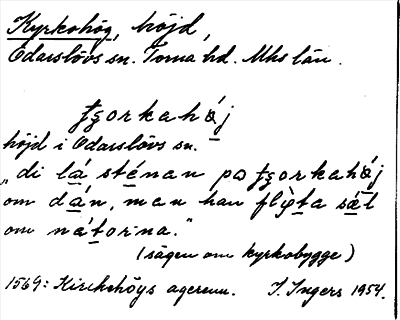 Kyrkohög, höjd,
Odarslövs sn. Torna hd. Mhs län.
ƫʒorkahǿj
höjd i Odarslövs sn.
"di lá sténan pɔ ƫʒorkahǿj
om dán, man han flỳta sǽl
om nátorna."
(sägen om kyrkobygge)
1569: Kirckehöys agerenn. I. Ingers 1954.